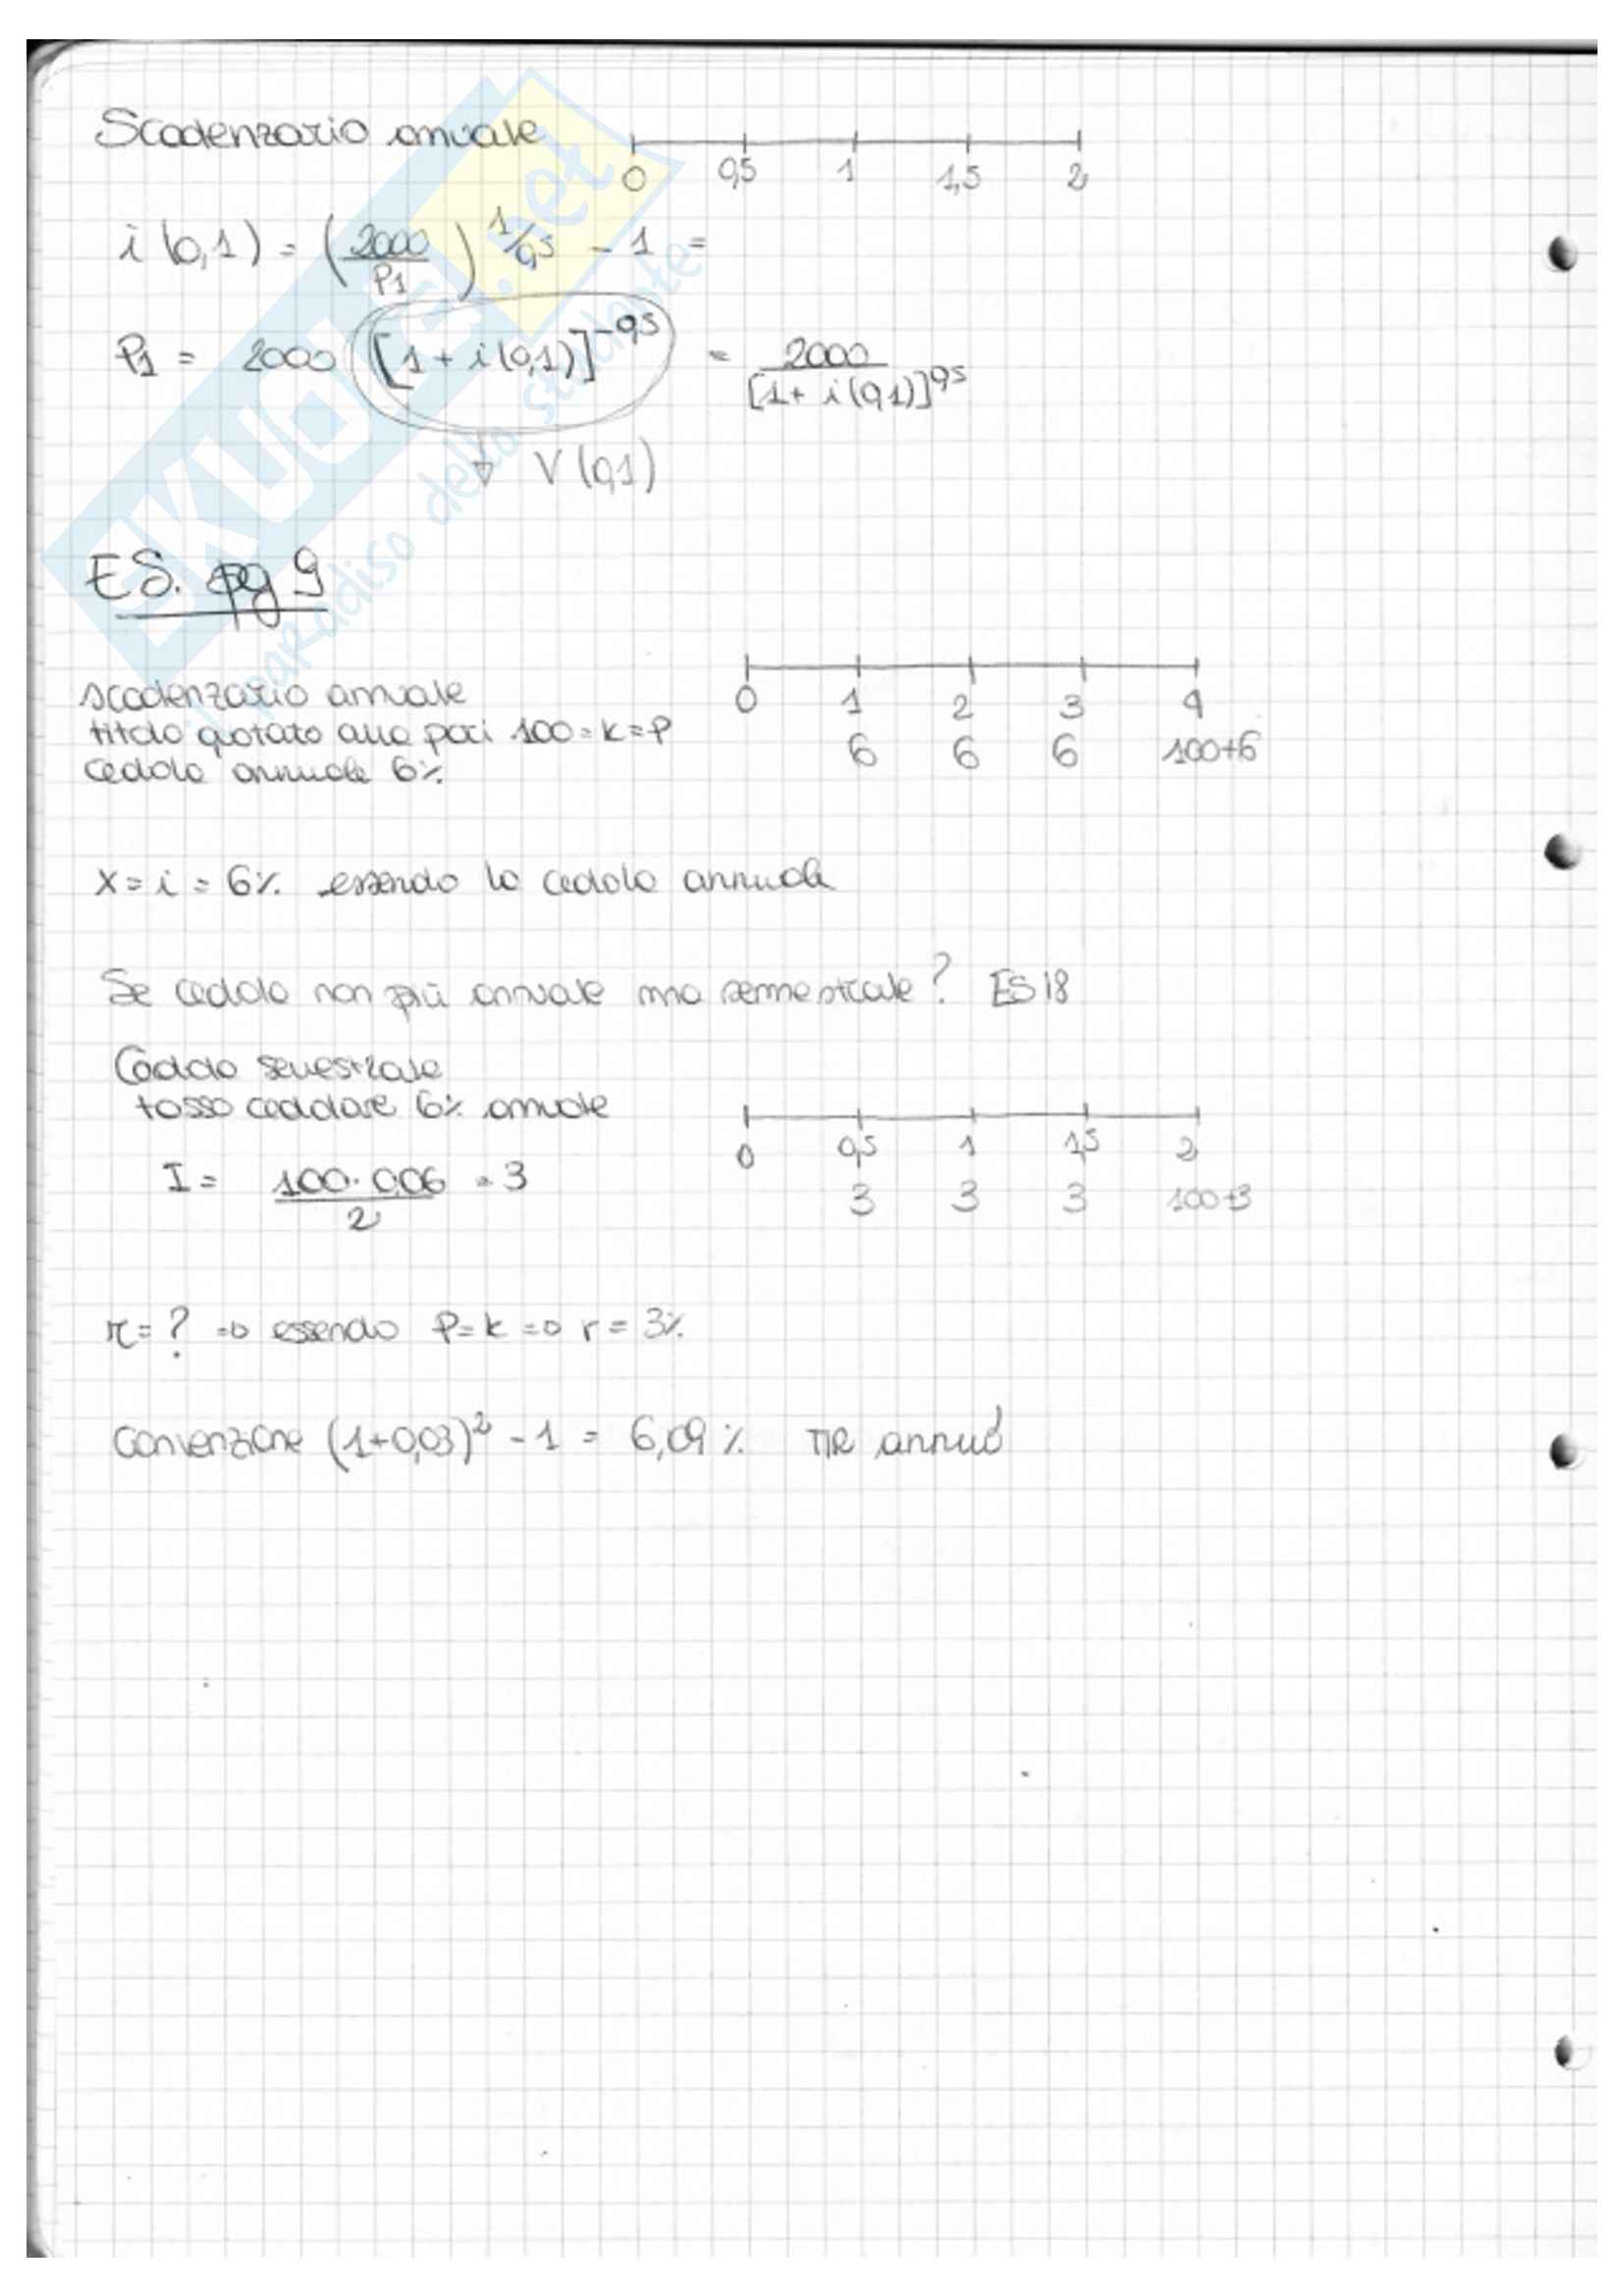 Scadenzario annuale
0 0,5 1 1,5 2
i(0,1) = (2000/P1)^1/0,5 - 1 =
P1 = 2000 [1 + i(0,1)]^-0,5 = 2000/[1 + i(0,1)]^0,5
V(0,1)
ES. pg 9
0 1 2 3 4
scadenzario annuale
titolo quotato alla pari 100 = K = P
6 6 6 100+6
cedola annuale 6%
X = i = 6% essendo la cedola annuale
Se cedola non più annuale ma semestrale? ES 18
Cedola semestrale
tasso cedolare 6% annuale
0 0,5 1 1,5 2
I = 100 · 0,06 / 2 = 3
3 3 3 100+3
r = ? => essendo P = K => r = 3%
Convenzione (1+0,03)^2 - 1 = 6,09% TIR annuo
SKUOLA.net
il paradiso dello studente